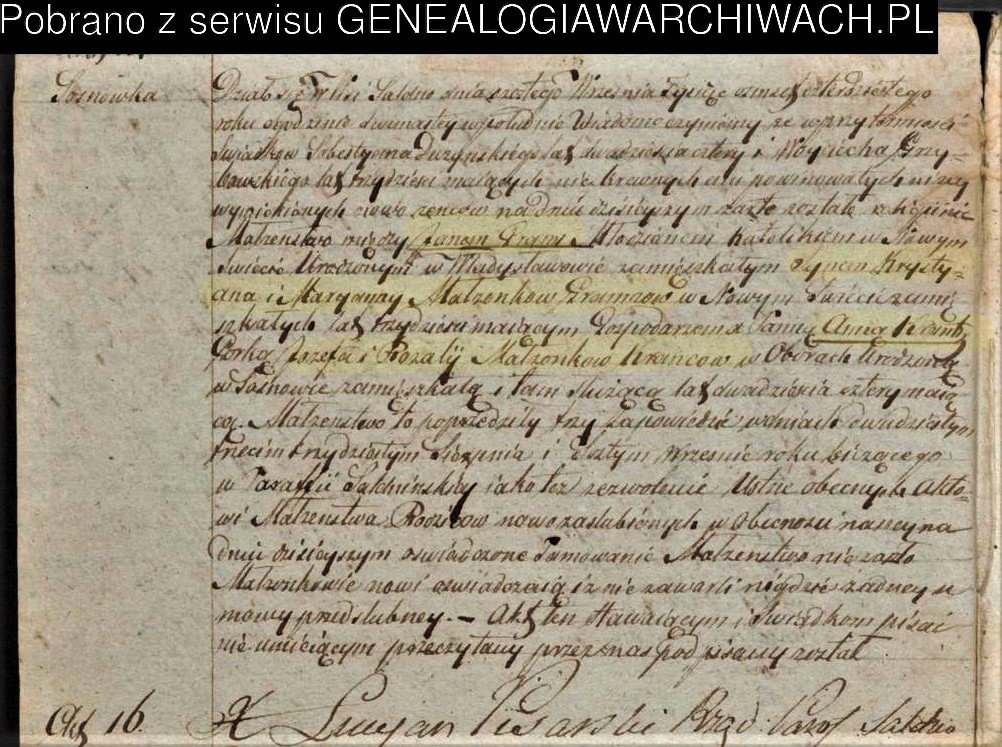 Pobrano z serwisu GENEALOGIAWARCHIWACH.PL
Sosnowka
Działo się w Wsi Salzno dnia szostego Września Tysiąc ośmset czterdziestego
roku o godzinie dwunastey w południe Wiadomo czyniemy że w przytomności
Swiadkow Sebestyana Duzynskiego lat dwadzieścia cztery i Woyciecha Grzy-
bowskiego lat trzydzieści maiących nie krewnych ani powinowatych niżey
nowo zencow na dniu dzisieyszym zarto zostało religiine
Małzeństwo między Janem Gram Młodzianem katolikiem w Nowym
Swiecie Urodzonym w Władysławowie zamieszkałym synem Krysty-
ana i Maryanny Małzonkow Gramzow w Nowym Swiecie zamie
szkałych lat trzydzieści maiącym Gospodarzem a Panną Anną Krantz
Corką Jozefa i Rozalij Małzonkow Krancow w Oborach Urodzoną
w Sosnowie zamieszkałą i tam służącą lat dwadzieścia cztery maią
cą. Małzenstwo to poprzedziły trzy zapowiedzie w dniach dwudziestym
trzecim trzydziestym Sierpnia i szostym wrzesnie roku bieżącego
w Parafii Salenińskiey iako też zezwolenie Ustne obecnych Akto-
wi Małzenstwa Rodzicow nowozaslubionych w obecnosci naszey na
dniu dzisieyszym oswiadczone Tamowanie Małzenstwo nie zaszło
Małzonkowie nowi oswiadczaią iz nie zawarli nigdzie zadney u
mowy przedslubney. — Akt ten stawaiącym i Swiadkom pisać
nie umieiącym przeczytany przez nas podpisany został
Akt 16. X Lucyan Pisarski Rząd. Paraf.